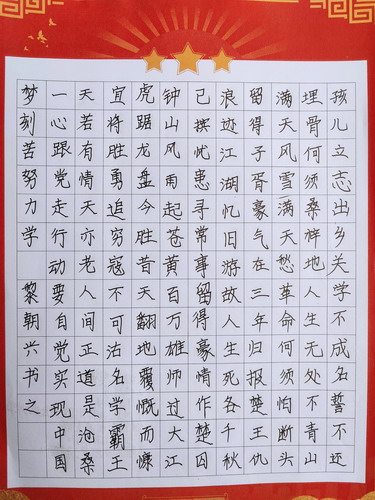 孩儿立志出乡关学不成名誓不还
埋骨何须桑梓地人生无处不青山
满天风雪满天愁革命何须怕断头
留得子胥豪气在三年归报楚王仇
浪迹江湖忆旧游故人生死各千秋
己摈忧患寻常事留得豪情作楚囚
钟山风雨起苍黄百万雄师过大江
虎踞龙盘今胜昔天翻地覆慨而慷
宜将胜勇追穷寇不可沽名学霸王
天若有情天亦老人间正道是沧桑
一心跟党走行动要自觉实现中国
梦刻苦努力学 黎朝兴书之